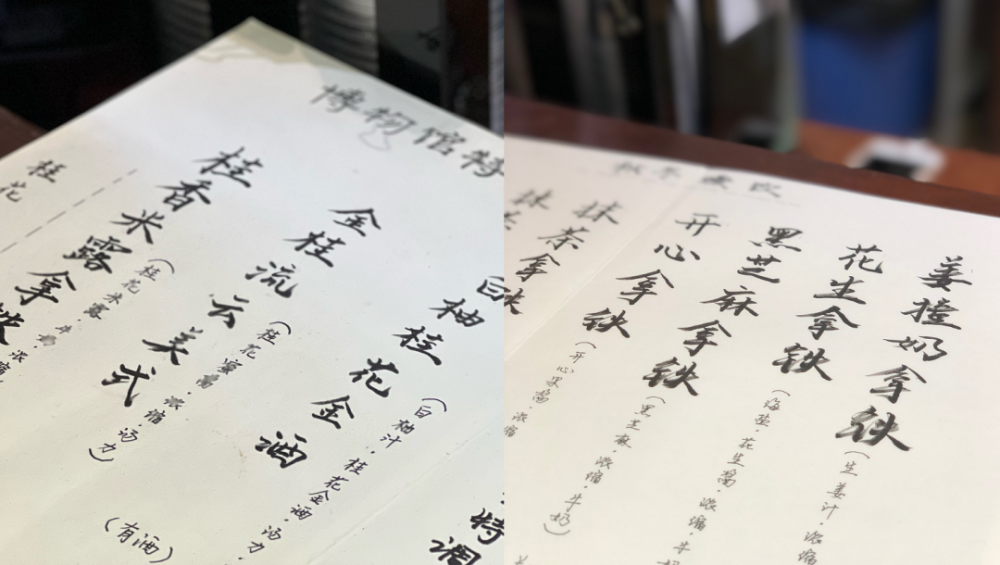 博物馆特
特调
白柚桂花金酒
(白柚汁·桂花金酒·汤力·
金桂流云美式
(桂花蜜酱·浓缩·汤力)
(有酒)
桂香米露拿铁
(桂花米露·牛奶·浓缩
桂花
秋冬
姜撞奶拿铁
(生姜汁·浓缩
花生拿铁
(海盐·花生酱·浓缩·牛
黑芝麻拿铁
(黑芝麻·浓缩·牛奶)
开心拿铁
(开心果酱·浓缩
抹茶拿铁
抹茶拿铁